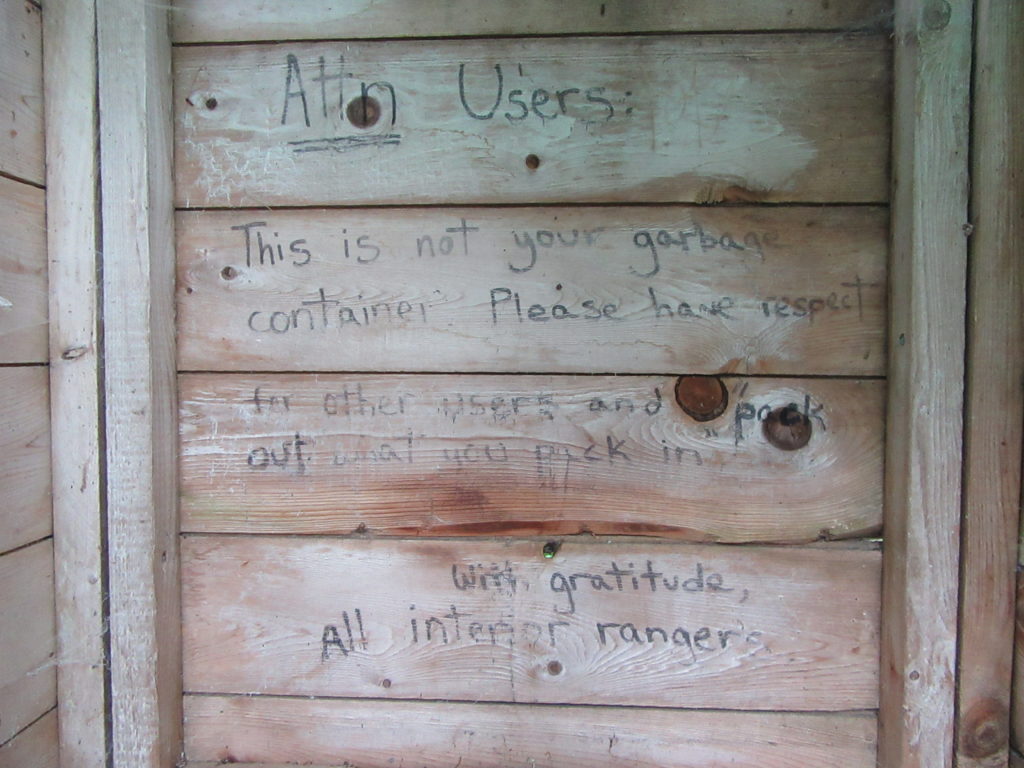 Attn Users:
This is not your garbage
container Please have respect
for other users and "pack
out what you pack in"
With gratitude,
All interior rangers